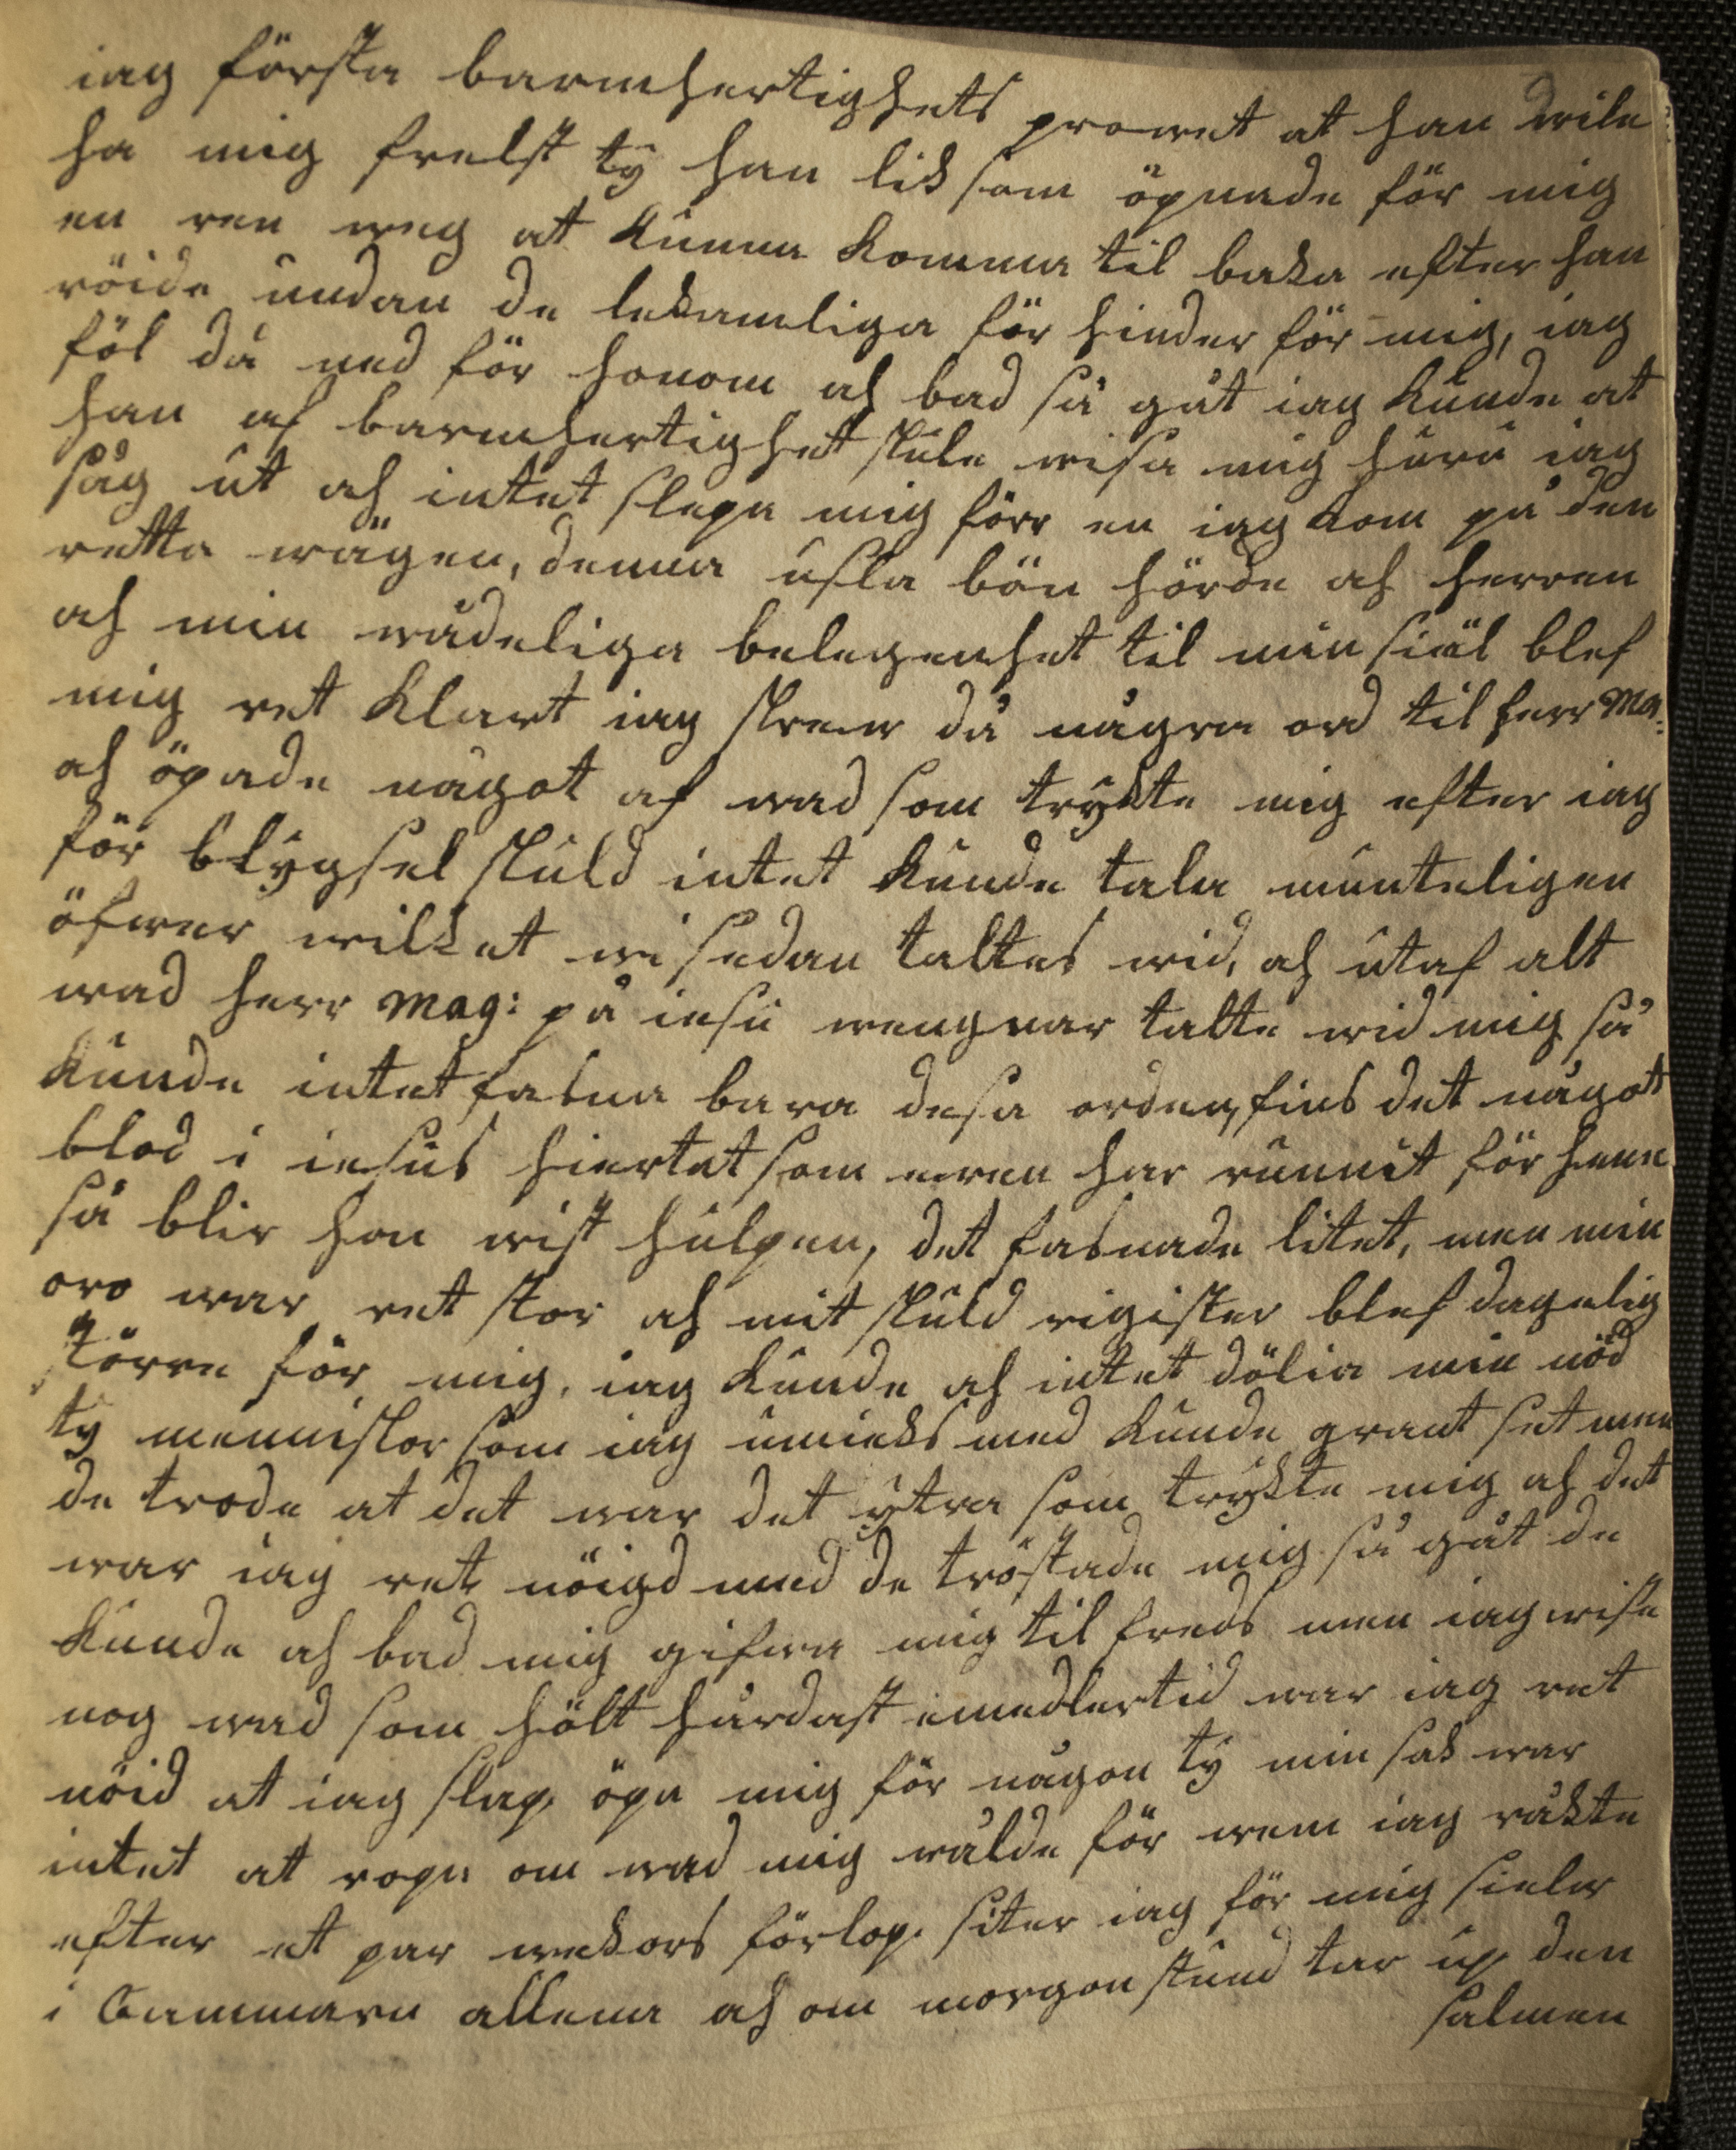 iag första barmhertighets prowet at han wile
ha mig frelst ty han lik som öpnade för mig
en ren weg at kunna komma til baka efter han
röide undan de lekamliga för hinder för mig, iag
föl då ned för honom ach bad så gåt iag kunde at
han af barmhertighet skule wisa mig huru iag
såg ut ach intet slepa mig förr en iag kom på den
retta wägen, denna usla bön hörde ach herren
ach min wådeliga belegenhet til min siäl blef
mig ret klart iag skrew då några ord til herr Ma:
ach öpade något af wad som trykte mig efter iag
för blygsel skuld intet kunde tala munteligen
öfwer wilket wi sedan taltes wid, ach utaf alt
wad herr Mag: på iesu wengnar talte wid mig så
kunde intet fasna bara desa orden, fins det något
blod i iesus hiertat som ewen har runnit för hene
så blir hon wist hulpen, det fasnade litet, men min
oro war ret stor ach mit skuld rigister blef dagelig
större för mig, iag kunde ach intet dölia min nöd
ty menniskor som iag umieks med kunde grant set men
de trode at det war det ytra som trykte mig ach det
war iag ret nöigd med de tröstade mig så gåt de
kunde ach bad mig gifwa mig til freds men iag wiste
nog wad som hölt hårdast emedlertid war iag ret
nöid at iag slap öpa mig för någon ty min sak war
intet at ropa om wad mig wålde för wem iag råkte
efter et par wekors förlop siter iag för mig sielw
i Cammarn allena ach om morgon stund tar up den
salmen